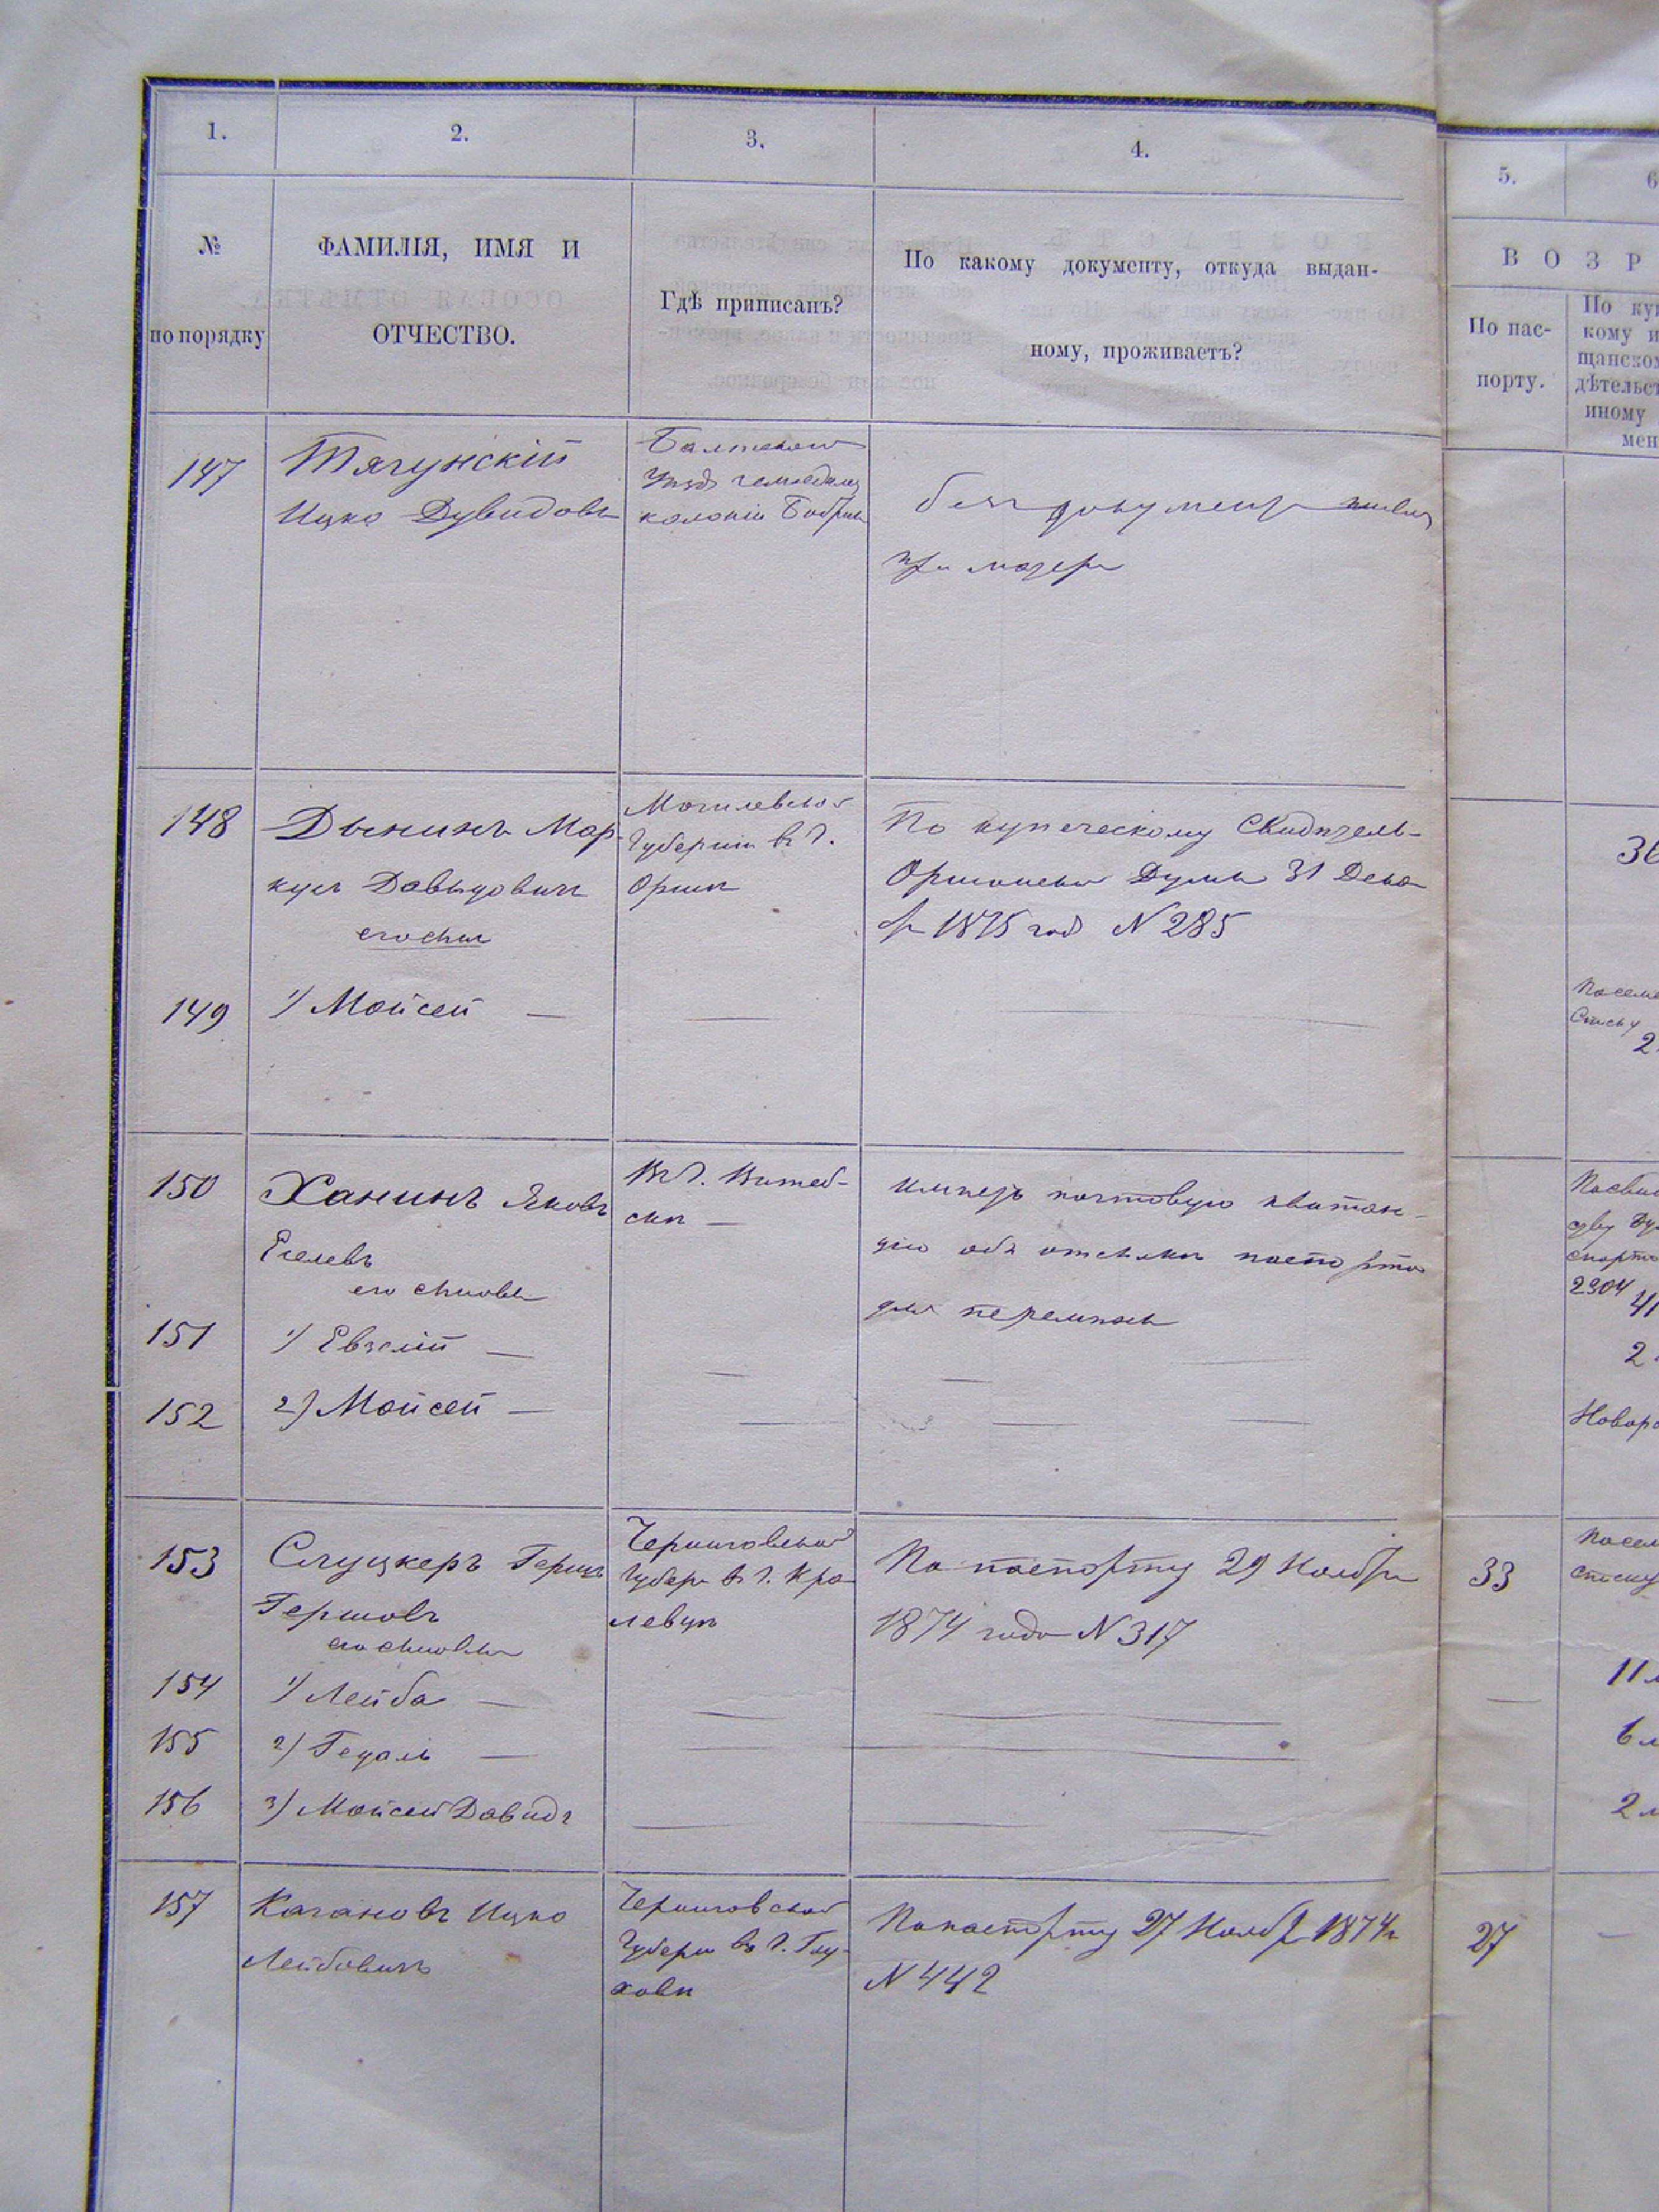 1.
2.
3.
4.
5.
6
№
по порядку
ФАМИЛІЯ, ИМЯ И
ОТЧЕСТВО.
Гдѣ приписанъ?
По какому документу, откуда выдан-
ному, проживаетъ?
ВОЗР
По пас-
порту.
По куп
кому и
щанском
дѣтельст
иному
мен
147
Тягунскій
Ицко Дувидовъ
колоніи
безъ документа
при матери
148
Дынинъ Мар-
кусъ Давыдовичъ
его сынъ
Могилевской
Губерніи въ г.
Оршѣ
По купеческому Свидѣтель-
Оршанской Думы 31 Декаб
1875 год N 285
36
149
1) Мойсей —
150
Ханинъ Яковъ
его сыновья
Въ г. Витеб-
скѣ —
Имѣетъ почтовую квитан-
цію объ отсылкѣ паспорта
для перемѣны
2904
41
151
1) —
2
152
2) Мойсей —
Новоро
153
Слуцкеръ Герцъ
Гершовъ
его сыновья
Черниговской
Губерн въ г. Кро-
левцѣ
По паспорту 29 Ноября
1874 года N 317
33
154
1) Лейба —
11 л
155
2) —
6 л
156
3) Мойсей Давидъ
2 л
157
Кагановъ Ицко
Лейбовичъ
Черниговской
Губерн въ г. Глу-
ховѣ
По паспорту 27 Ноябр 1874 г
N 442
27